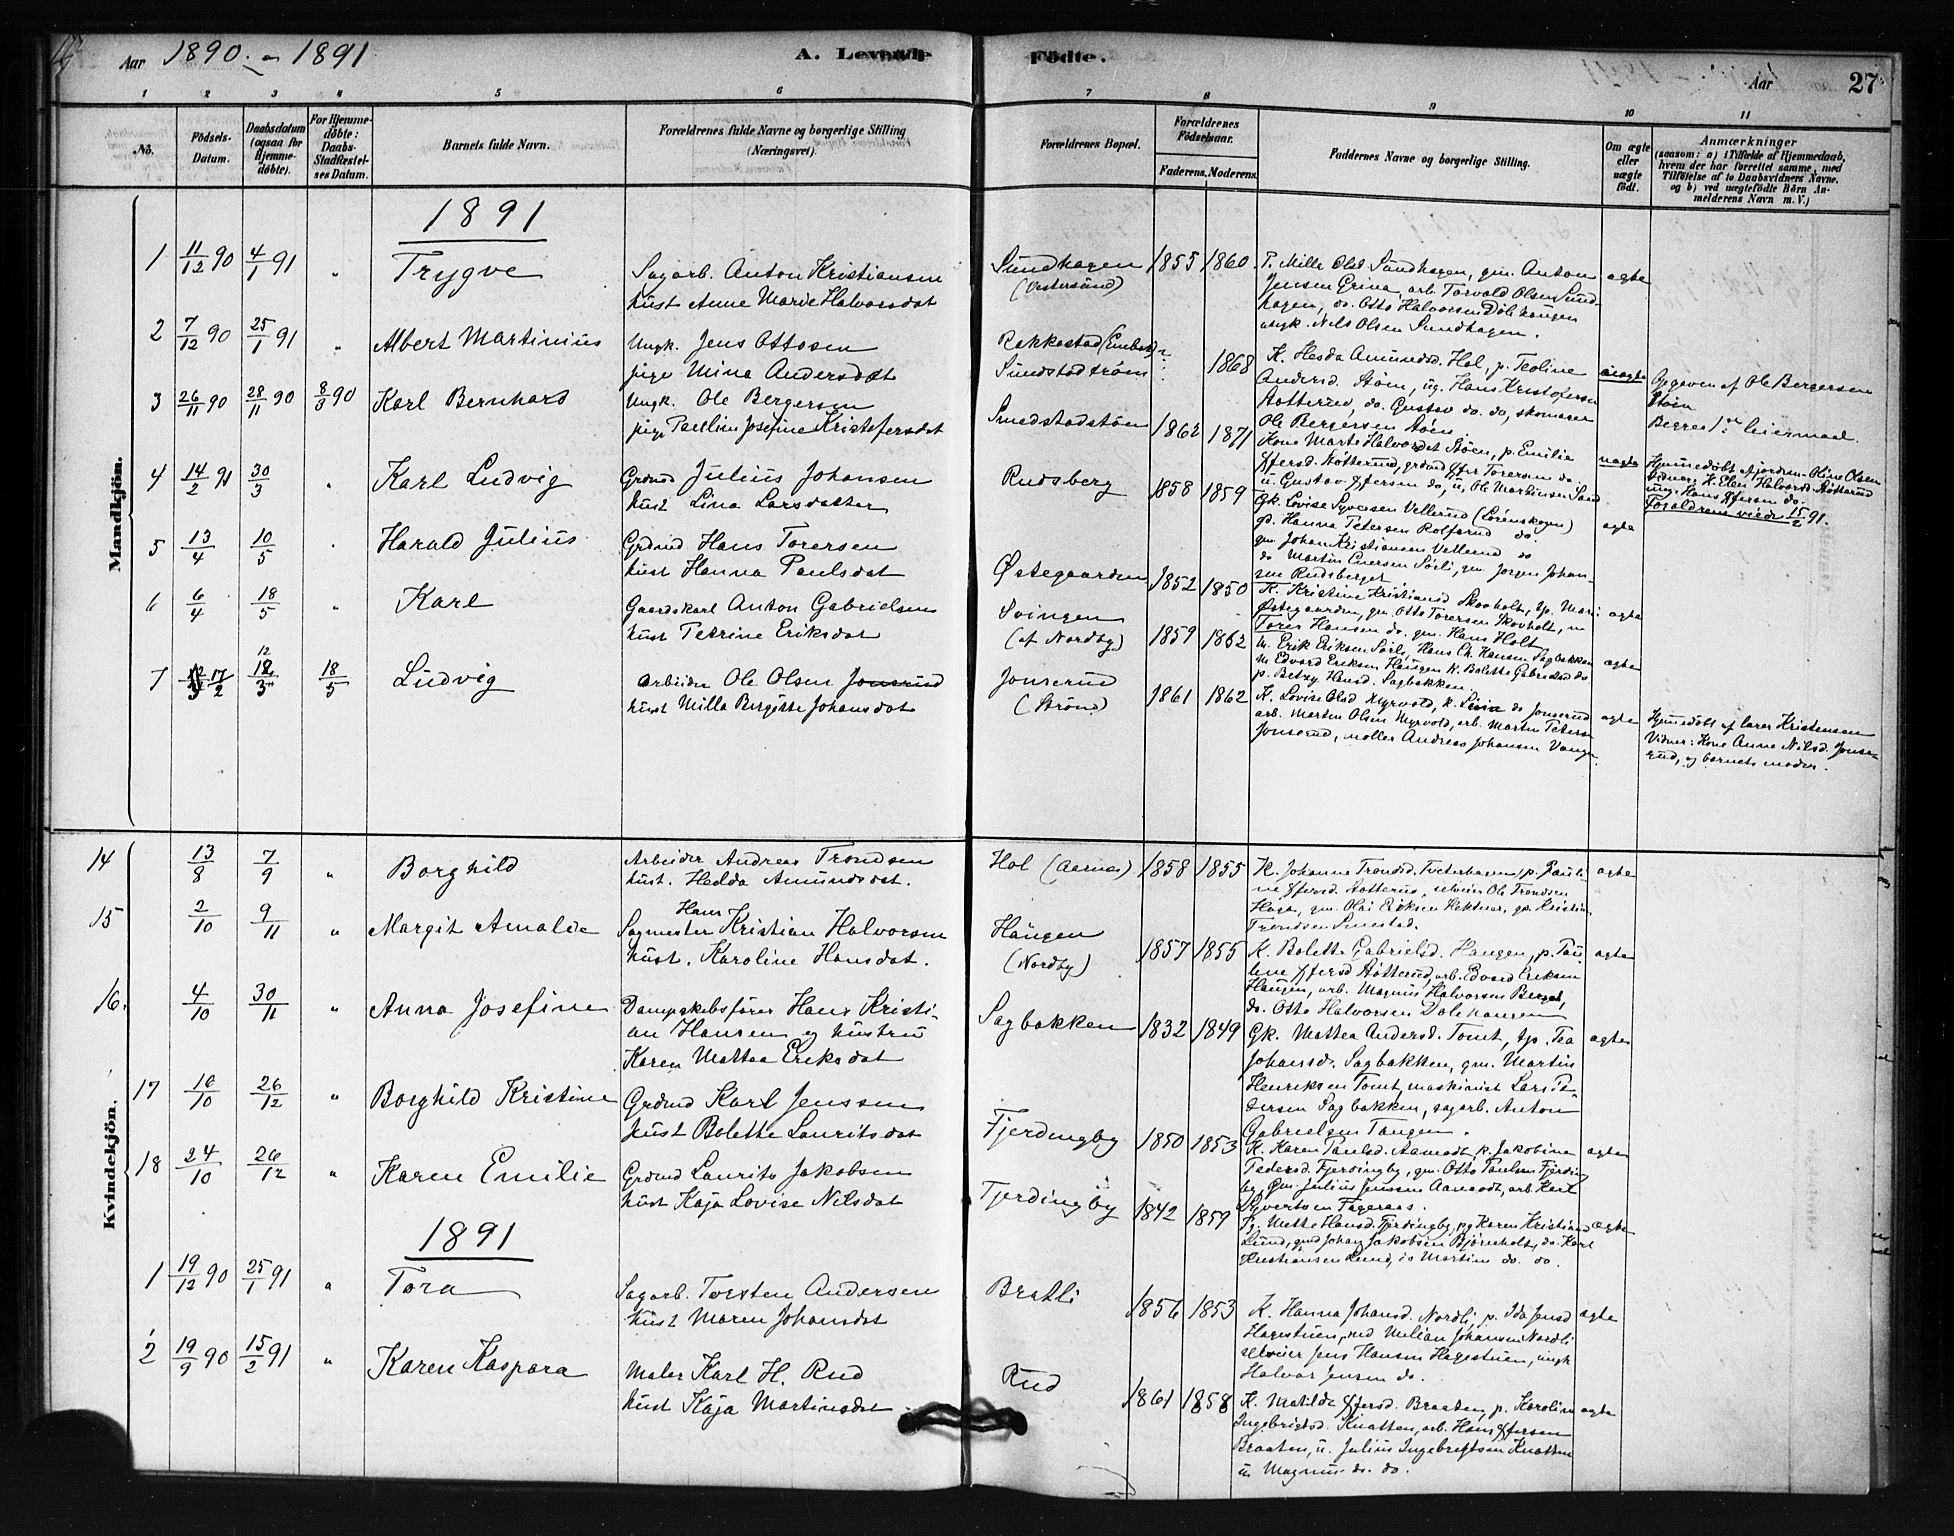 Aar 1890 - 1891
A. Levende Födte.
Aar 27
1 2 3 4 5 6 7 8 9 10 11
No.
Födsels-Datum.
Daabsdatum (ogsaa for Hjemmedöbte).
For Hjemmedöbte: Daabs-Stadfæstelses Datum.
Barnets fulde Navn.
Forældrenes fulde Navne og borgerlige Stilling (Næringsvei).
Forældrenes Bopæl.
Forældrenes Födselsaar.
Faderens. Moderens.
Faddernes Navne og borgerlige Stilling.
Om ægte eller uægte födt.
Anmærkninger
(saasom: a) i Tilfælde af Hjemmedaab,
hvem der har forrettet samme, med
Tilföielse af to Daabsvidners Navne.
og b) ved uægtefödte Börn An-
melderens Navn m. V.)
Mandkjön.
1891
1 11/12 90 4/1 91 " Trygve
Sagarb. Anton Kristiansen
hust Anne Marie Halvorsdat
Sundhagen
(Vestersund)
1855 1860
P. Milla Olsd Sundhagen, gm. Anton
Jensen Grina, arb. Torvald Olsen Sund-
hagen, do. Otto Halvorsen Dölihaugen
ungk. Nils Olsen Sundhagen.
ægte
2 7/12 90 25/1 91 " Albert Martinius
Ungk. Jens Ottosen
pige Mina Andersdat
Rakkestad
Sundstadtröen
1868
K. Hedda Amundsd. Hol, p. Teoline
Andersd. Stöen, ug. Hans Kristofersen
Støtterud, do. Gustav do. do, skomager
Ole Bergersen Stöen
uægte
Opgiven af Ole Bergersen
Stöen
Begges 1ste leiermaal.
3 26/11 90 28/11 90 8/3 90 Karl Bernhard
Ungk. Ole Bergersen
pige Pauline Josefine Kristofersdat
Smedstadstöen
1862 1871
Kone Marte Halvorsdat Stöen, p. Emilie
uægte
Vidner: K. Elen Halvorsd. Støtterud
ung. Hans Kfersen do.
Forældrene viede 15/2 91.
4 14/2 91 30/3 " Karl Ludvig
Grdmd Julius Johansen
hust Lina Larsdatter
Rudsberg
1858 1859
Gk. Lovise Syversen Vellerud (Lörenskogen)
gd. Hanna Petersen Rolfsrud do.
gm. Johan Kristiansen Vellerud do
do Martin Evensen Sörli, gm. Jorgen Johan-
sen Rudsberget
ægte
5 13/4 10/5 " Harald Julius
Grdmd Hans Torersen
hust Hanna Paulsdat
Østegaarden
1852 1850
K. Kristine Kristiansd Skovholt, tp. Mari
Østegaarden, gm Otto Torersen Skovholt, m
Torer Hansen do. gm. Hans Holt
ægte
6 6/4 18/5 " Karl
Gaardskarl Anton Gabrielsen
hust Petrine Eriksdat
Svingen
(af Nordby)
1859 1862
m. Erik Eriksen Sörli, Hans Ch. Hansen Sagbakken
m Edvard Eriksen Haugen K. Bolette Gabrielsd do
p. Betzy Hansd. Sagbakken
ægte
7 17/2 12/3 18/5 Ludvig
Arbeider Ole Olsen Jonsrud
hust Milla Bergitte Johansdat
Jonsrud
(Strönd)
1861 1862
K. Lovise Olsd Myrvold, k. Lina do Jonsrud
arb. Martin Olsen Myrvold, arb. Martin Petersen
Jonsrud, møller Andreas Johansen Vangen
ægte
Hjemmedöbt af lærer Kristensen
Vidner: Kone Anne Nilsd. Jons-
rud, og barnets moder.
Kvindekjön.
14 13/8 7/9 " Borghild
Arbeider Andreas Trondsen
hust. Hedda Amundsdat.
Hol (Aarnes)
1858 1855
K. Johanne Trondsd. Tveterhagen, p. Pauli-
ne Kfersd. Støtterud, selveier Ole Trondsen
Haga, gm. Olai Eriksen Hektner, gm Kristian
Trondsen Smestad.
ægte
15 2/10 9/11 " Margit Amalde
Sagmester Hans Kristian Halvorsen
hust. Karoline Hansdat.
Haugen
(Nordby)
1857 1855
K. Bolette Gabrielsd. Haugen, p. Pau-
line Kfersd Støtterud, arb. Edvard Eriksen
Haugen, arb. Magnus Halvorsen Berget,
do. Otto Halvorsen Dölihaugen
ægte
16. 4/10 30/11 " Anna Josefine
Dampskibsförer Hans Kristi-
an Hansen og hustru
Karen Mathea Eriksdat
Sagbakken
1832 1849
Gk. Mathea Andersd. Tomt, tp. Tea
Johansd. Sagbakken, gm. Martin
Henriksen Tomt, maskinist Lars Pe-
dersen Sagbakken, sagarb. Anton
Gabrielsen Tangen.
ægte
17 10/10 26/12 " Borghild Kristine
Grdmd Karl Jenssen
hust Bolette Lauritsdat
Fjerdingby
1850 1853
K. Karen Paulsd. Aamodt, p. Jakobine
Pedersd. Fjerdingby, gm. Otto Paulsen Fjerding-
by, gm. Julius Jenssen Aamodt, arb Karl
Syvertsen Fageraas.
ægte
18 24/10 26/12 " Karen Emilie
Grdmd Laurits Jakobsen
hust Kaja Lovise Nilsdat
Fjerdingby
1842 1859
Pg. Mette Hansd. Fjerdingby, pg Karen Kristiansd
Lund, gmd Johan Jakobsen Bjørnholt, do. Karl
Kristiansen Lund, do Martin do. do.
ægte
1891
1 19/12 90 25/1 91 " Tora
Sagarb. Torsten Andersen
hust Maren Johansdat
Bratli
1856 1853
K. Hanna Johansd. Nordli, p. Ida Jensd
Hagestuen, md Melian Johansen Nordli
selveier Jens Hansen Hagestuen, ungk
Halvor Jensen do.
ægte
2 19/9 90 15/2 91 " Karen Kaspara
Maler Karl H. Rud
hust Kaja Martinsdat
Rud
1861 1858
K. Matilde Kfersd. Braaten, p. Karoline
Ingebrigtsd. Knatten, arb. Hans Kfersen
Braaten, u. Julius Ingebrigtsen Knatten
u. Magnus do. do.
ægte